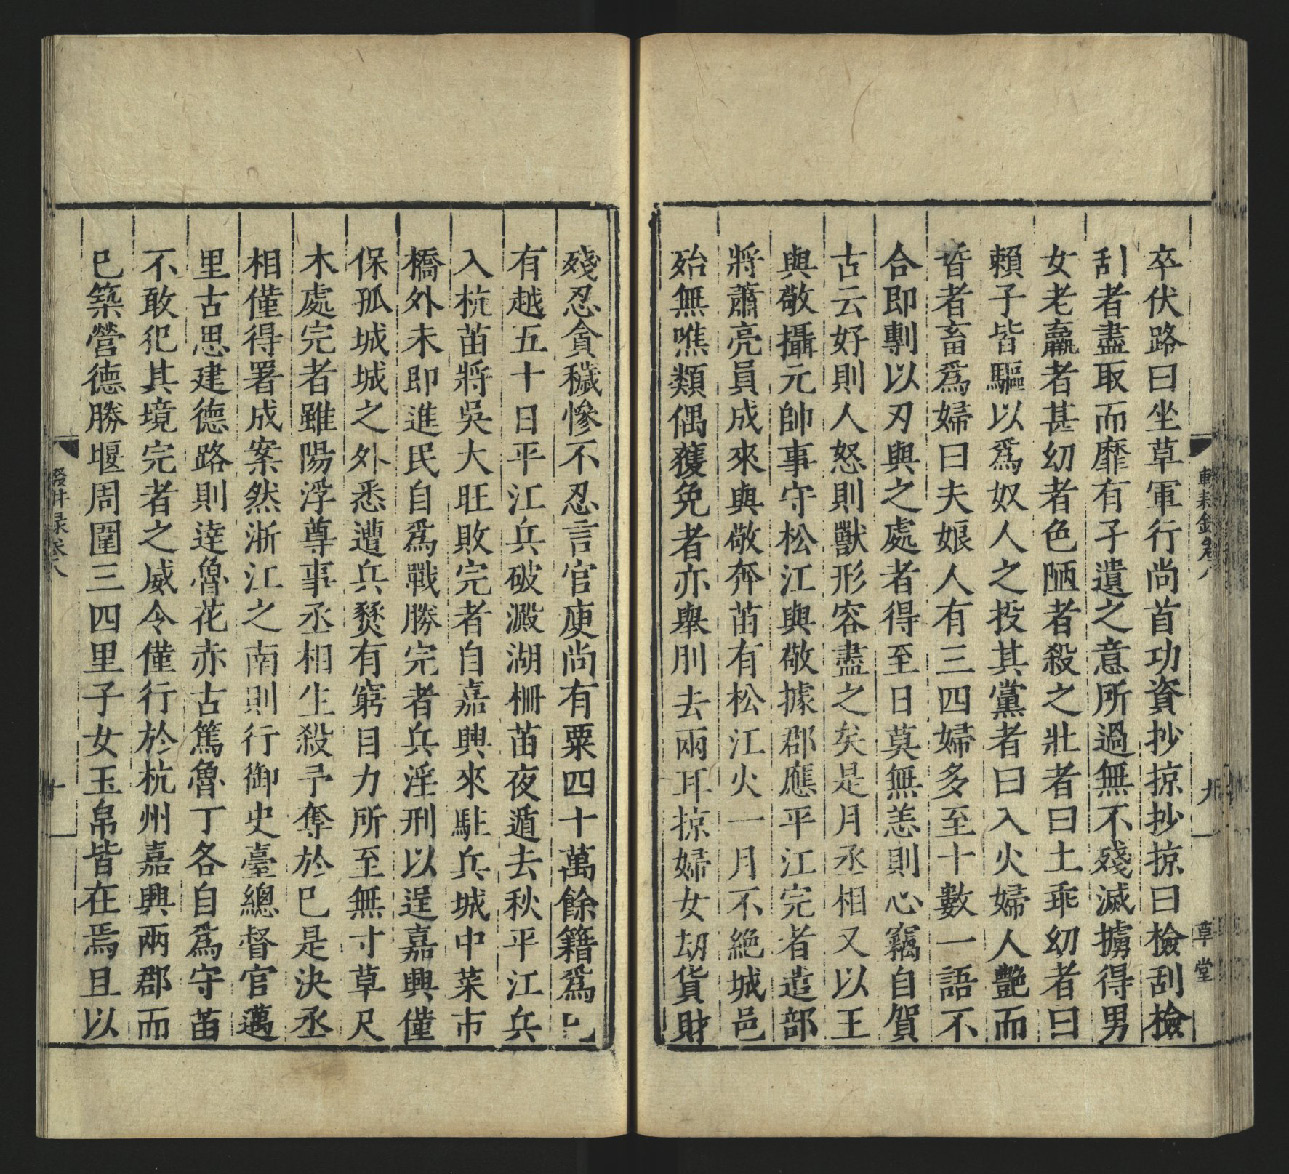 卒伏路曰坐草軍行尚首功資抄掠抄掠曰檢刮檢
刮者盡取而靡有孑遺之意所過無不殘滅擄得男
女老羸者甚幼者色陋者殺之壯者曰土乖幼者曰
賴子皆驅以爲奴人之投其黨者曰入火婦人艶而
皙者畜爲婦曰夫娘人有三四婦多至十數一語不
合即剸以刃與之處者得至日莫無恙則心竊自賀
古云好則人怒則獸形容盡之矣是月丞相又以王
與敬攝元帥事守松江與敬據郡應平江完者遣部
將蕭亮員成來與敬奔苗有松江火一月不絶城邑
殆無噍類偶獲免者亦舉刖去兩耳掠婦女刼貨財
殘忍貪穢慘不忍言官庾尚有粟四十萬餘籍爲已
有越五十日平江兵破澱湖柵苗夜遁去秋平江兵
入杭苗將吳大旺敗完者自嘉興來駐兵城中菜市
橋外未即進民自爲戰勝完者兵淫刑以逞嘉興僅
保孤城城之外悉遭兵燹有窮目力所至無寸草尺
木處完者雖陽浮尊事丞相生殺予奪於已是決丞
相僅得署成案然浙江之南則行御史臺總督官邁
里古思建德路則達魯花赤古篤魯丁各自爲守苗
不敢犯其境完者之威令僅行於杭州嘉興兩郡而
已築營德勝堰周圍三四里子女玉帛皆在焉且以
輟耕錄卷八
九
草堂
輟耕录卷八
十